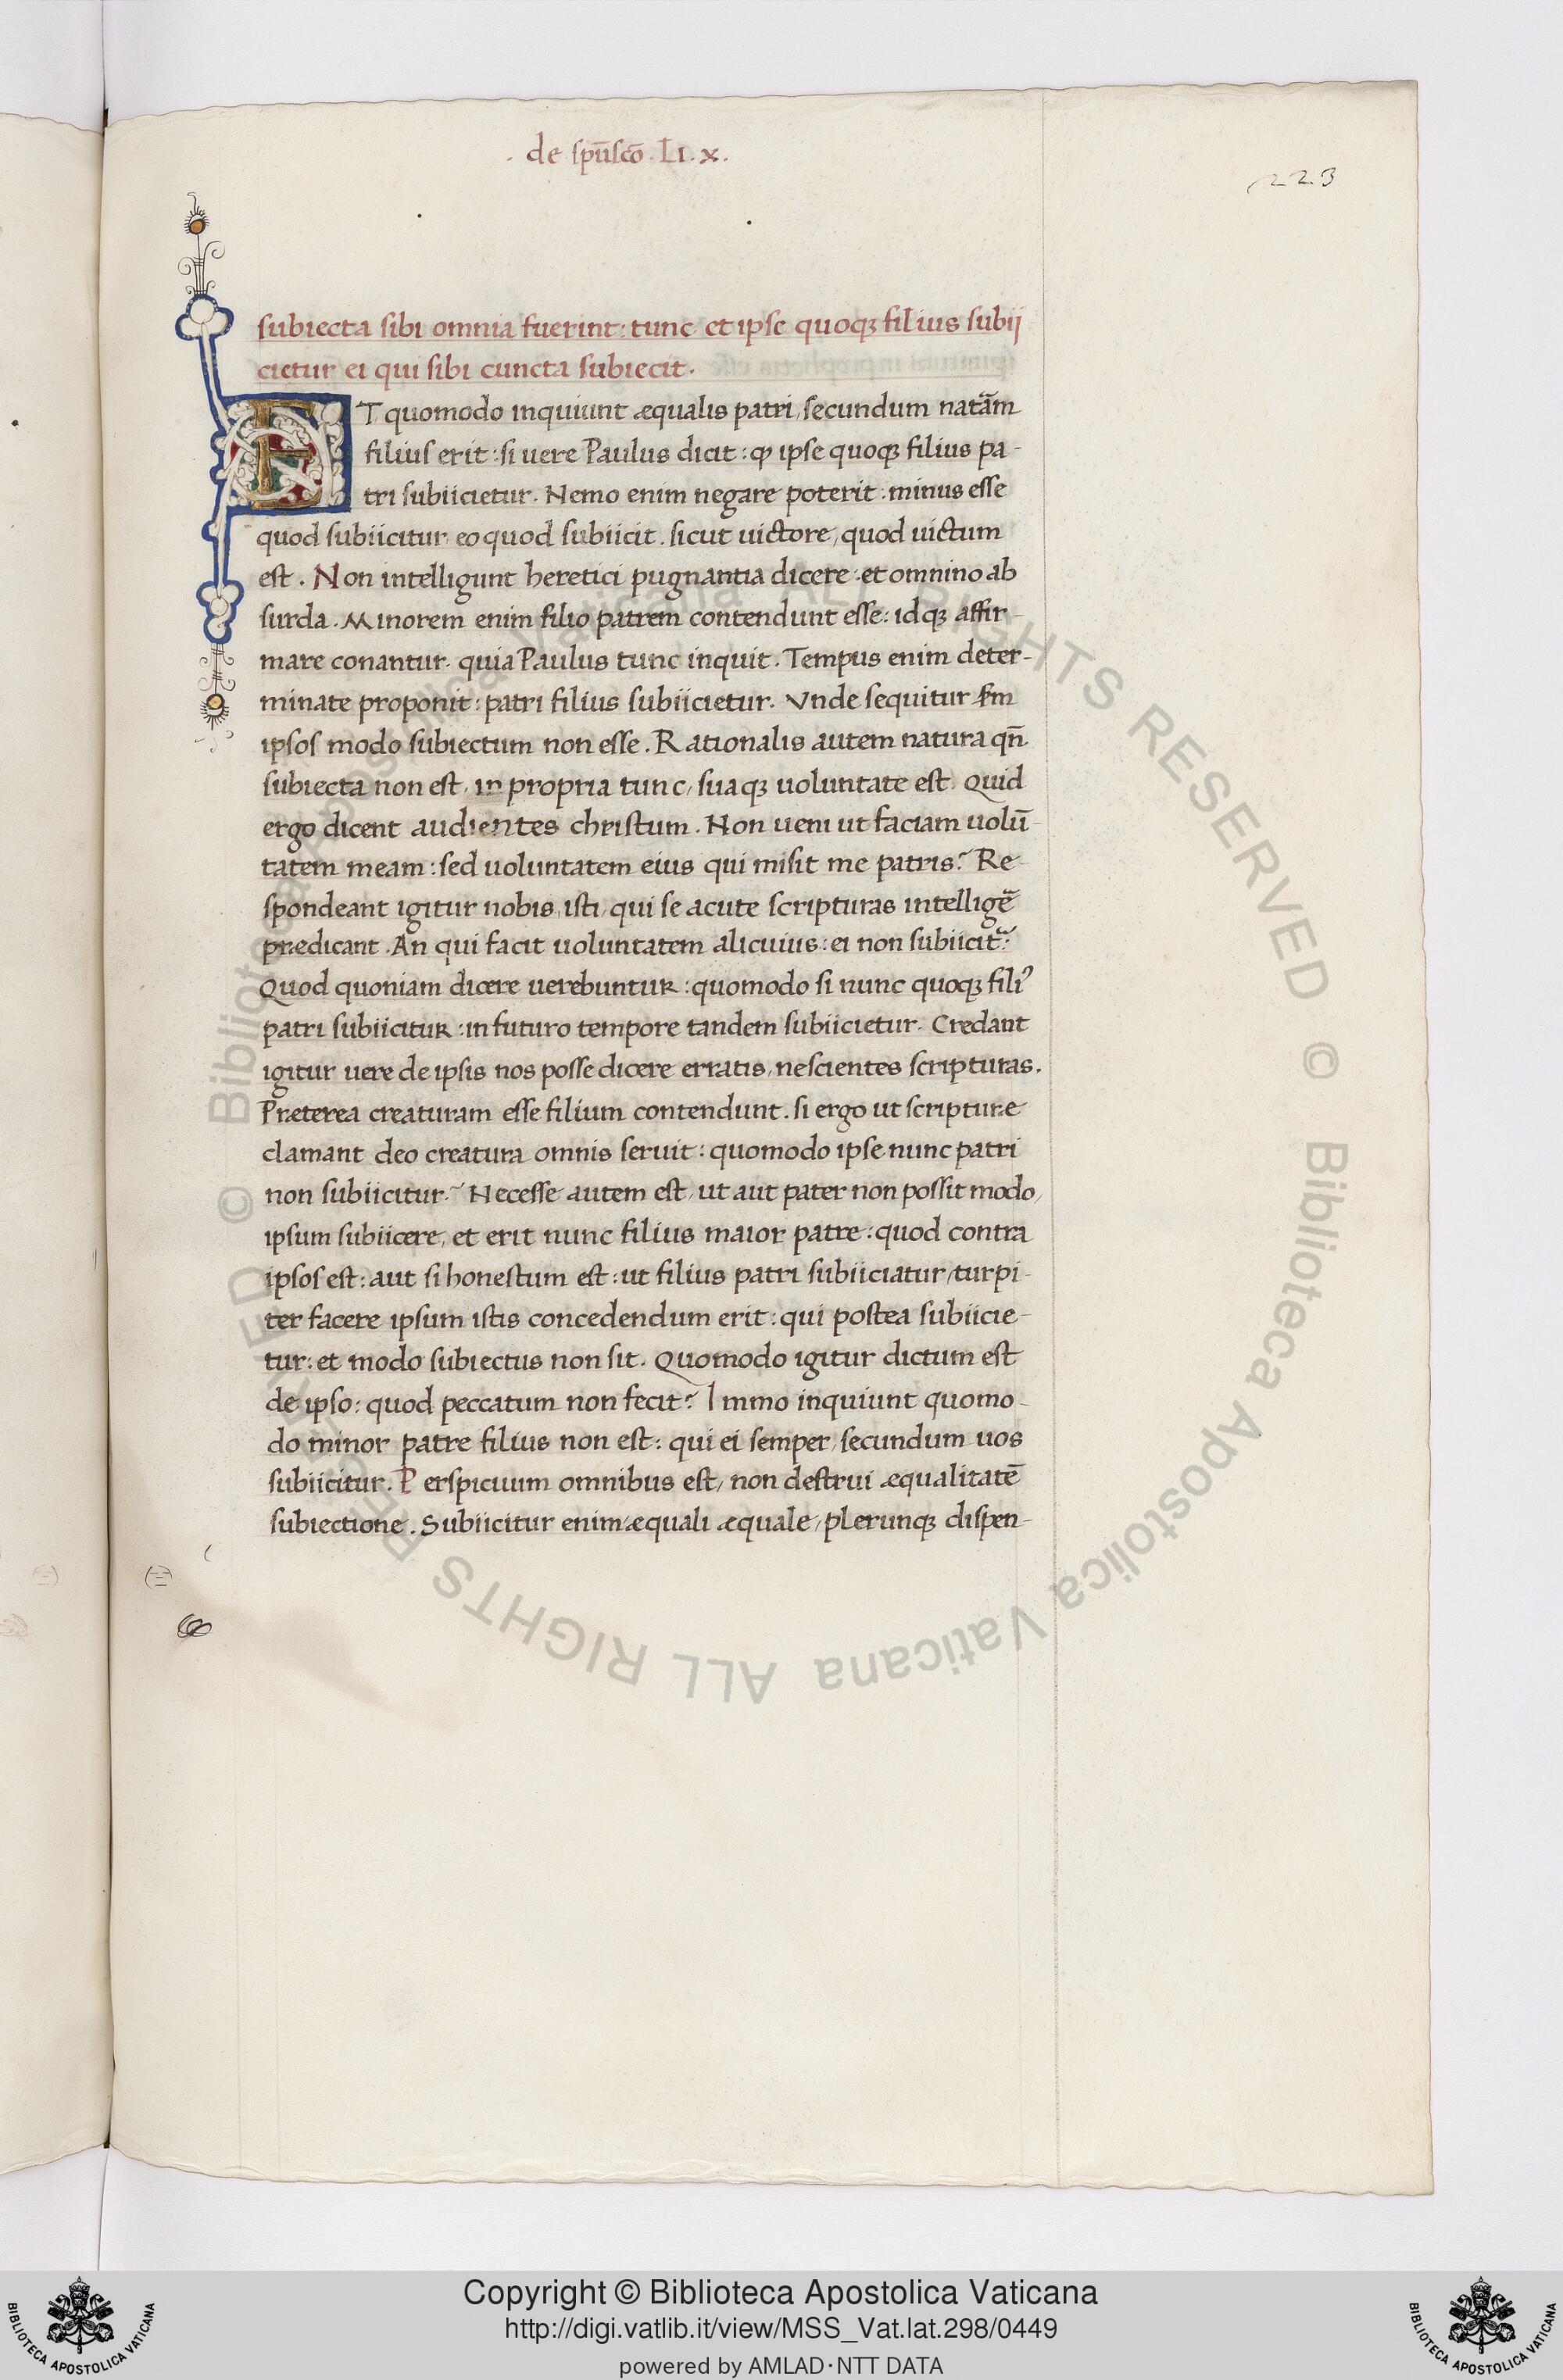 . de spūscō . Lı . x .
223
subiecta sibi omnia fuerint: tunc et ipse quoqꝫ filius subij
cietur ei qui sibi cuncta subiecit.
ET quomodo inquiunt æqualis patri, secundum natām
filius erit: si uere Paulus dicit: ꝙ ipse quoqꝫ filius pa-
tri subiicietur. Nemo enim negare poterit: minus esse
quod subiicitur eo quod subiicit. sicut uictore, quod uictum
est. Non intelligunt heretici pugnantia dicere: et omnino ab
surda. Minorem enim filio patrem contendunt esse: idqꝫ affir-
mare conantur. quia Paulus tunc inquit. Tempus enim deter-
minate proponit: patri filius subiicietur. Vnde sequitur s̄m
ipsos modo subiectum non esse. Rationalis autem natura qn̄
subiecta non est, in propria tunc, suaqꝫ uoluntate est. Quid
ergo dicent audientes christum. Non ueni ut faciam uolū-
tatem meam: sed uoluntatem eius qui misit me patris? Re-
spondeant igitur nobis, isti, qui se acute scripturas intelligē
prædicant. An qui facit uoluntatem alicuius: ei non subiicit̄?
Quod quoniam dicere uerebuntur: quomodo si nunc quoqꝫ filiꝰ
patri subiicitur: in futuro tempore tandem subiicietur. Credant
igitur uere de ipsis nos posse dicere erratis, nescientes scripturas.
Præterea creaturam esse filium contendunt. si ergo ut scripture
clamant deo creatura omnis seruit: quomodo ipse nunc patri
non subiicitur? Necesse autem est, ut aut pater non possit modo,
ipsum subiicere, et erit nunc filius maior patre: quod contra
ipsos est: aut si honestum est: ut filius patri subiiciatur, turpi-
ter facere ipsum istis concedendum erit: qui postea subiicie-
tur: et modo subiectus non sit. Quomodo igitur dictum est
de ipso: quod peccatum non fecit? Immo inquiunt quomo-
do minor patre filius non est: qui ei semper, secundum uos
subiicitur. Perspicuum omnibus est, non destrui æqualitatē
subiectione. Subiicitur enim æquali æquale, plerunqꝫ dispen-
© Biblioteca Apostolica Vaticana ALL RIGHTS RESERVED © Biblioteca Apostolica Vaticana ALL RIGHTS RESERVED
Copyright © Biblioteca Apostolica Vaticana
http://digi.vatlib.it/view/MSS_Vat.lat.298/0449
powered by AMLAD·NTT DATA
BIBLIOTECA APOSTOLICA VATICANA
BIBLIOTECA APOSTOLICA VATICANA